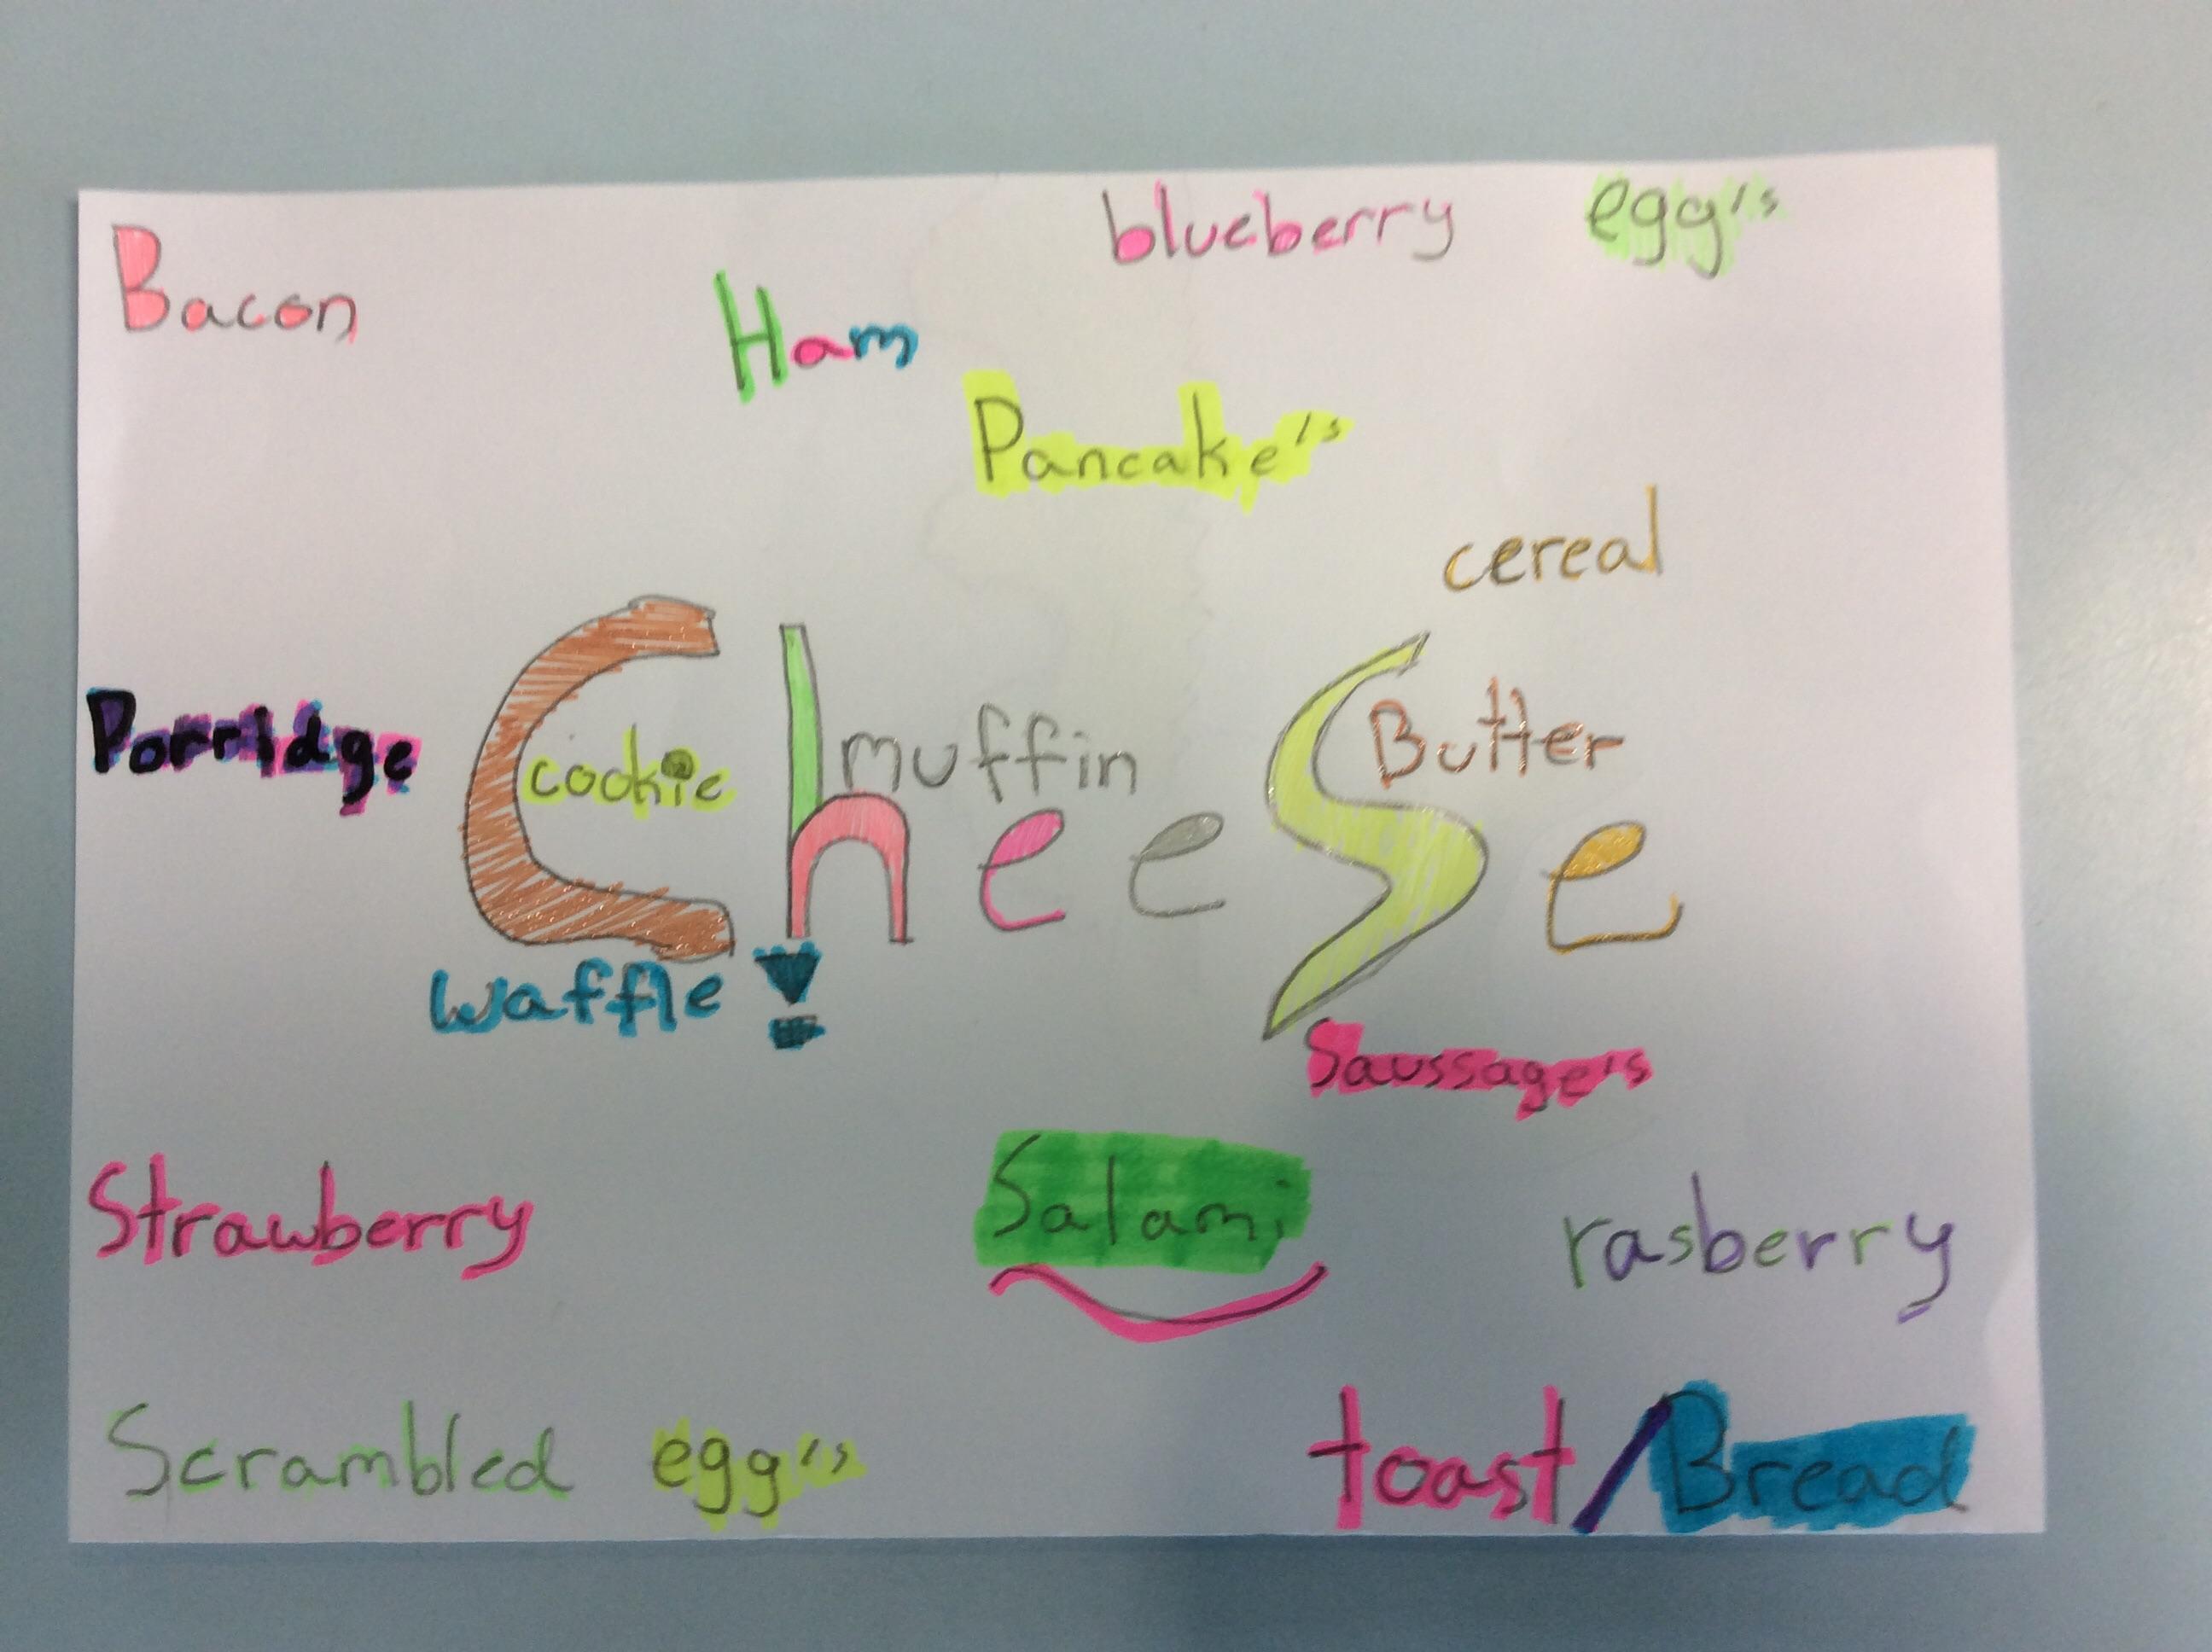 blueberry egg's
Bacon
Ham
Pancake's
cereal
Porridge
cookie
muffin
Butter
Cheese
waffle!
Saussage's
Strawberry
Salami
rasberry
Scrambled egg's
toast/Bread